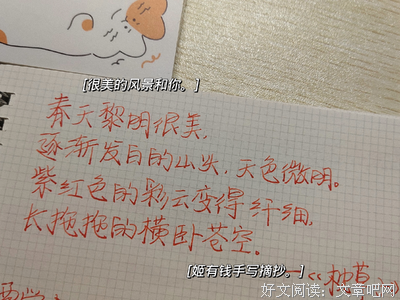 [很美的风景和你。]
春天黎明很美,
逐渐发白的山头,天色微明。
紫红色的彩云变得纤细,
长拖拖的横卧苍空。
[姬有钱手写摘抄。]
—《枕草
好文阅读:文章吧网